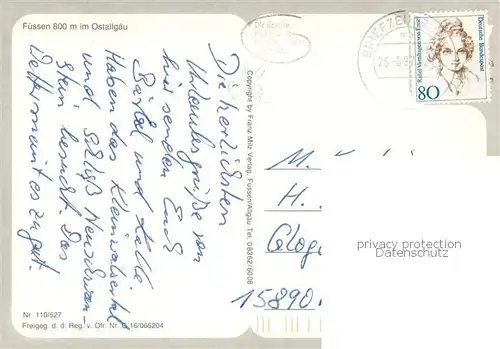 Füssen 800 m im Ostallgäu
Die herzlichsten
Urlaubsgrüße von
hier senden Euch
Bärbel und Kalle
Haben das Kleinwalsertal
und Schloß Neuschwan-
stein besucht. Das
Wetter meint es zu gut.
Nr. 110/527
Freigeg. d. d. Reg. v. Obr. Nr. G 16/066204
Copyright by Franz Milz Verlag, Füssen/Allgäu Tel. 08362/6008
BRIEFZE
Deutsche Bundespost
Rahel Varnhagen von Ense
80
M.
H.
15890
privacy protection
Datenschutz